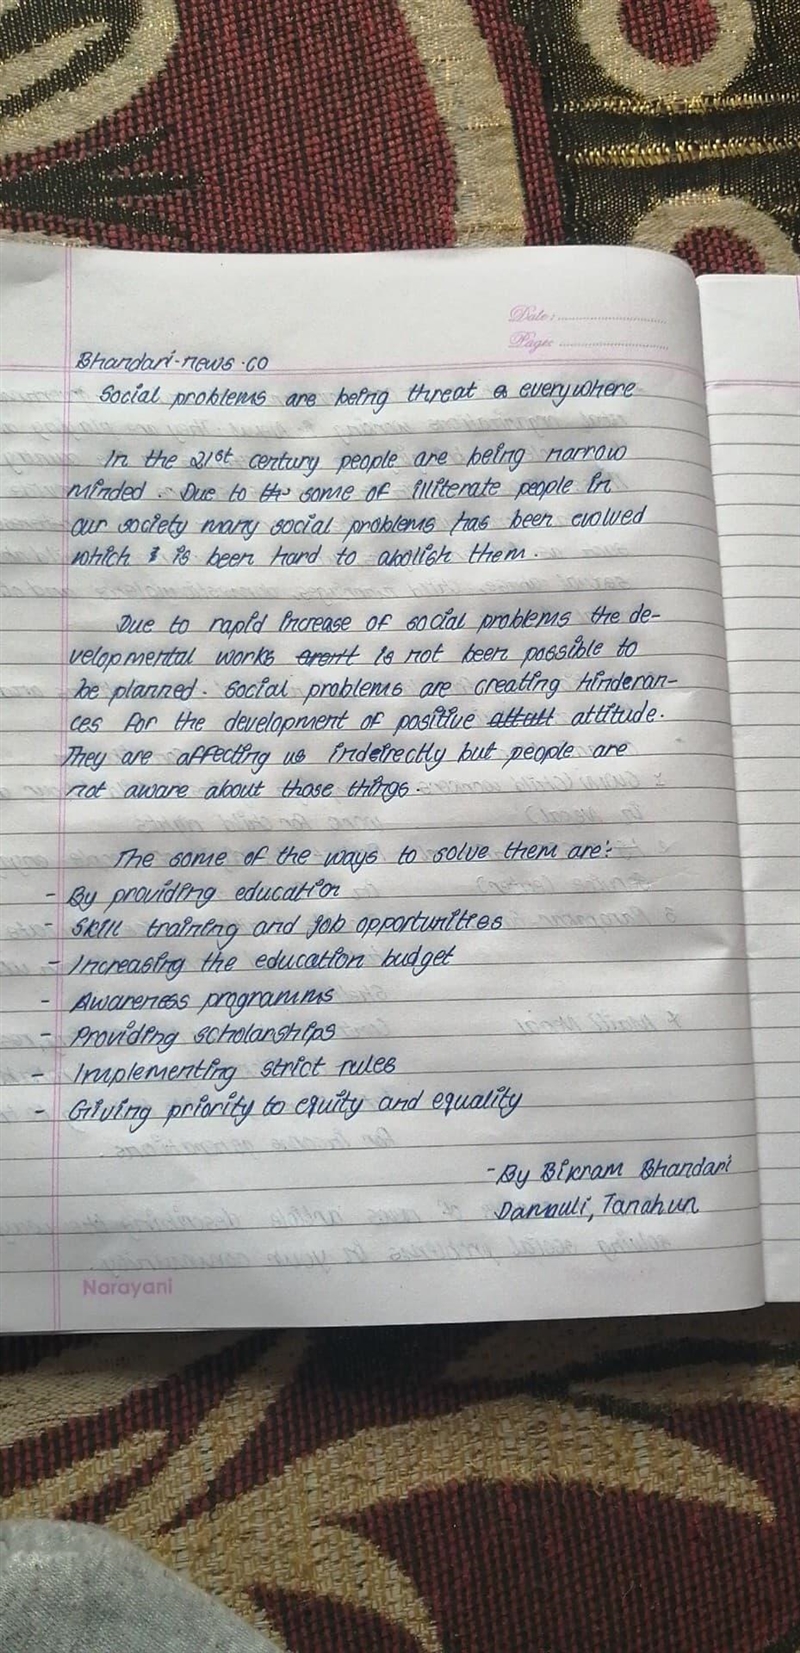 Date:
Page:
Bhandari-news.co
Social problems are being threat everywhere
In the 21st century people are being narrow
minded. Due to some of illiterate people in
our society many social problems has been evolved
which is been hard to abolish them.
Due to rapid increase of social problems the de-
velopmental works arent is not been possible to
be planned. Social problems are creating hinderan-
ces for the development of positive attitude.
They are affecting us indirectly but people are
not aware about those things.
The some of the ways to solve them are:
- By providing education
- Skill training and job opportunities
- Increasing the education budget
- Awareness programms
- Providing scholarships
- Implementing strict rules
- Giving priority to equity and equality
-By Bikram Bhandari
Damauli, Tanahun
Narayani